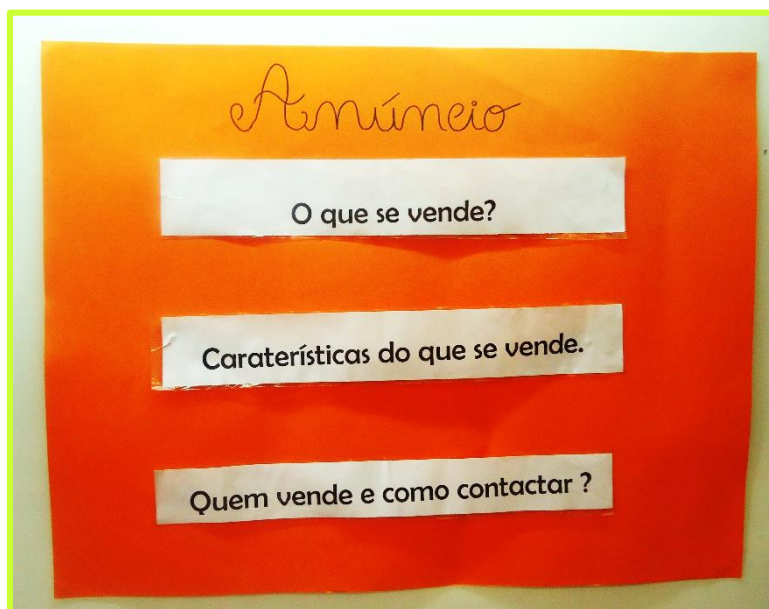 Anúncio
O que se vende?
Caraterísticas do que se vende.
Quem vende e como contactar ?